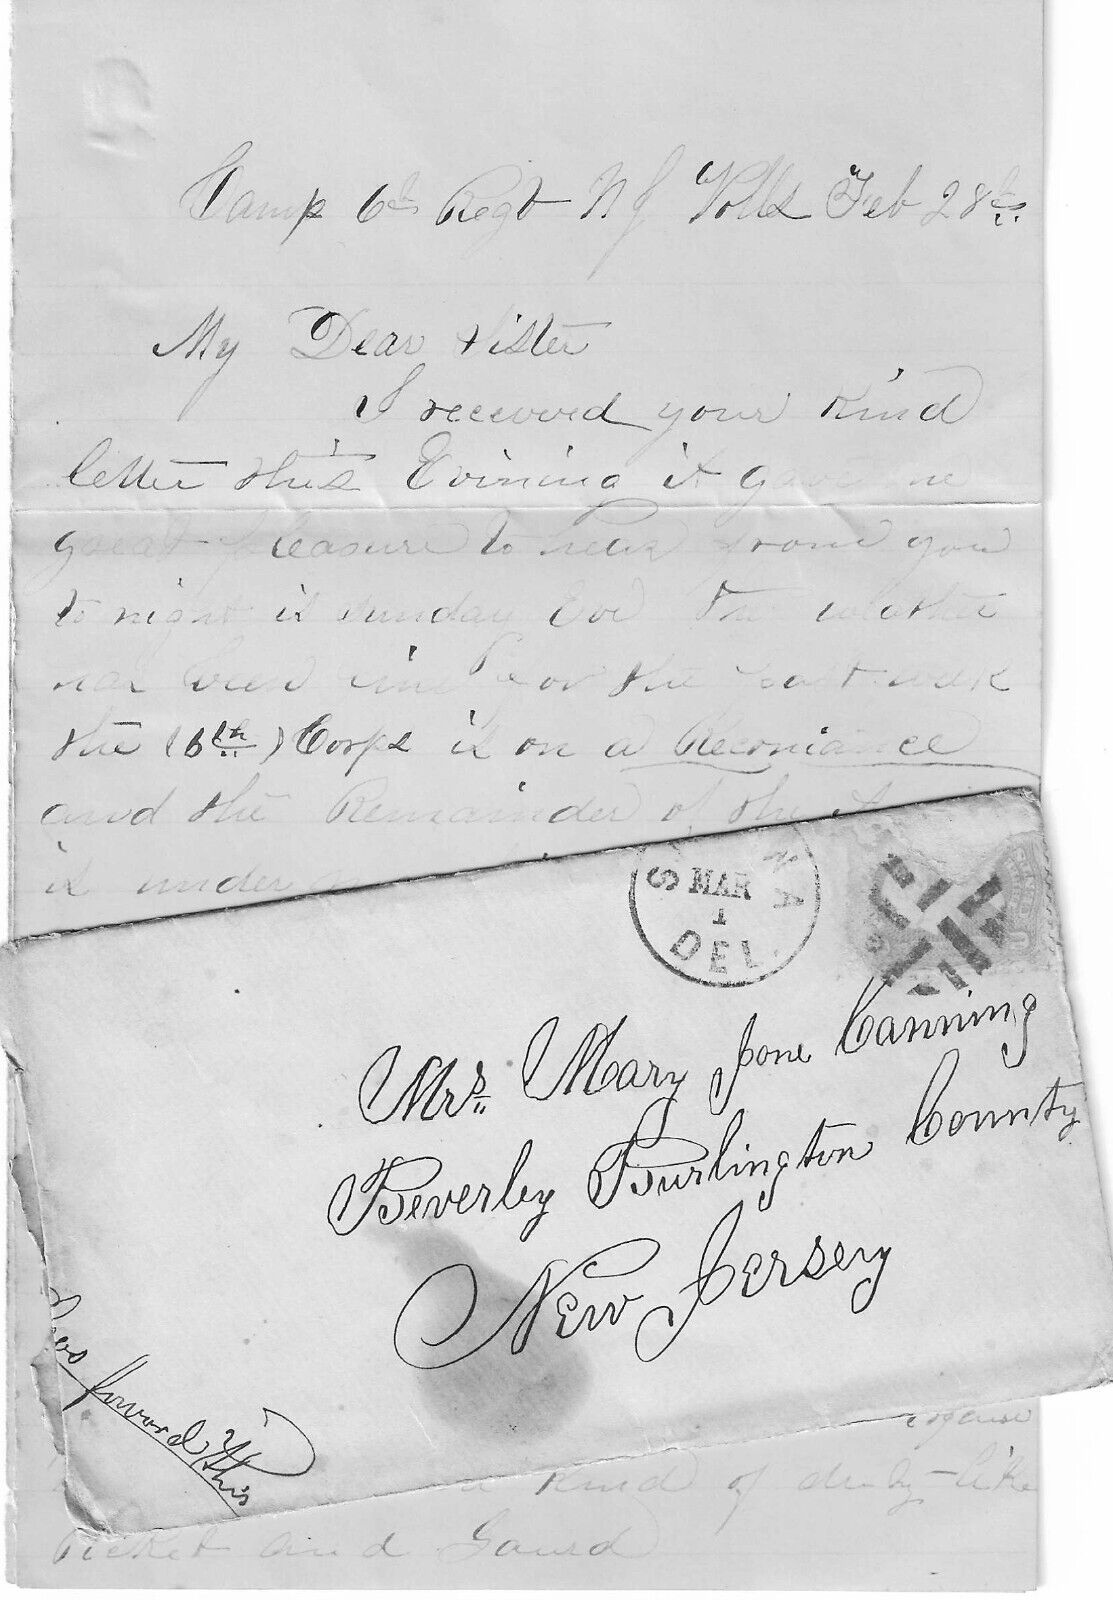 Camp 6th Regt N J Volls Feb 28th
My Dear Sister
I received your kind
letter this Evining it gave me
great pleasure to hear from you
to night is sunday Eve The weather
has been fine for the past week
the (6th) Corps is on a Reconiance
and the Remainder of the
is under
SMYRNA
MAR
1
DEL.
Mrs. Mary Jane Canning
Beverly Burlington County
New Jersey
forward this
kind of duty like
Picket and Gaurd